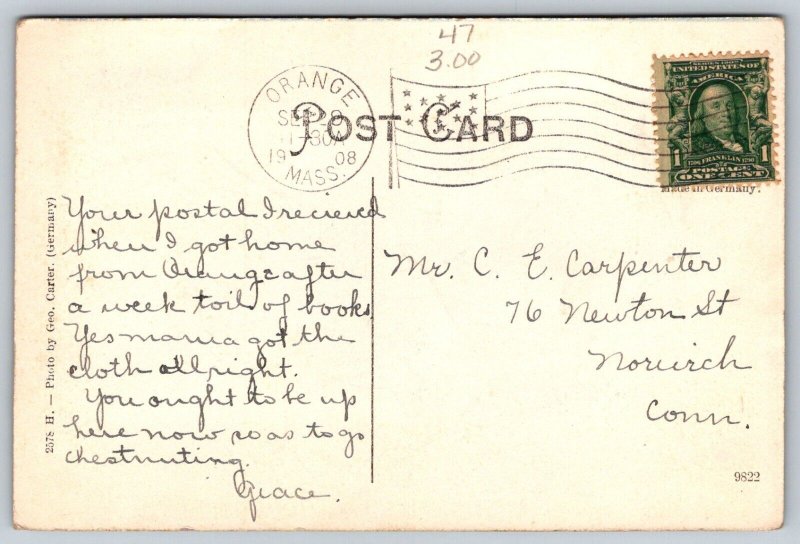 47
3.00
ORANGE
SEP
11-30A
1908
MASS.
POST CARD
SERIES 1902
UNITED STATES OF
AMERICA
1 FRANKLIN 1
POSTAGE
ONE CENT
Made in Germany.
Your postal I recieved
when I got home
from Orange after
a week toil of books
Yes mama got the
cloth all right.
You ought to be up
here now so as to go
chestnuting.
Grace.
Mr. C. E. Carpenter
76 Newton St
Norwich
Conn.
2578 H. — Photo by Geo. Carter. (Germany)
9822